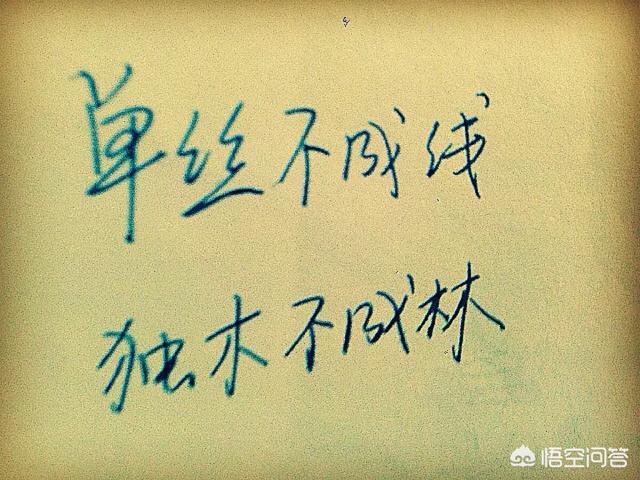 单丝不成线
独木不成林
悟空问答